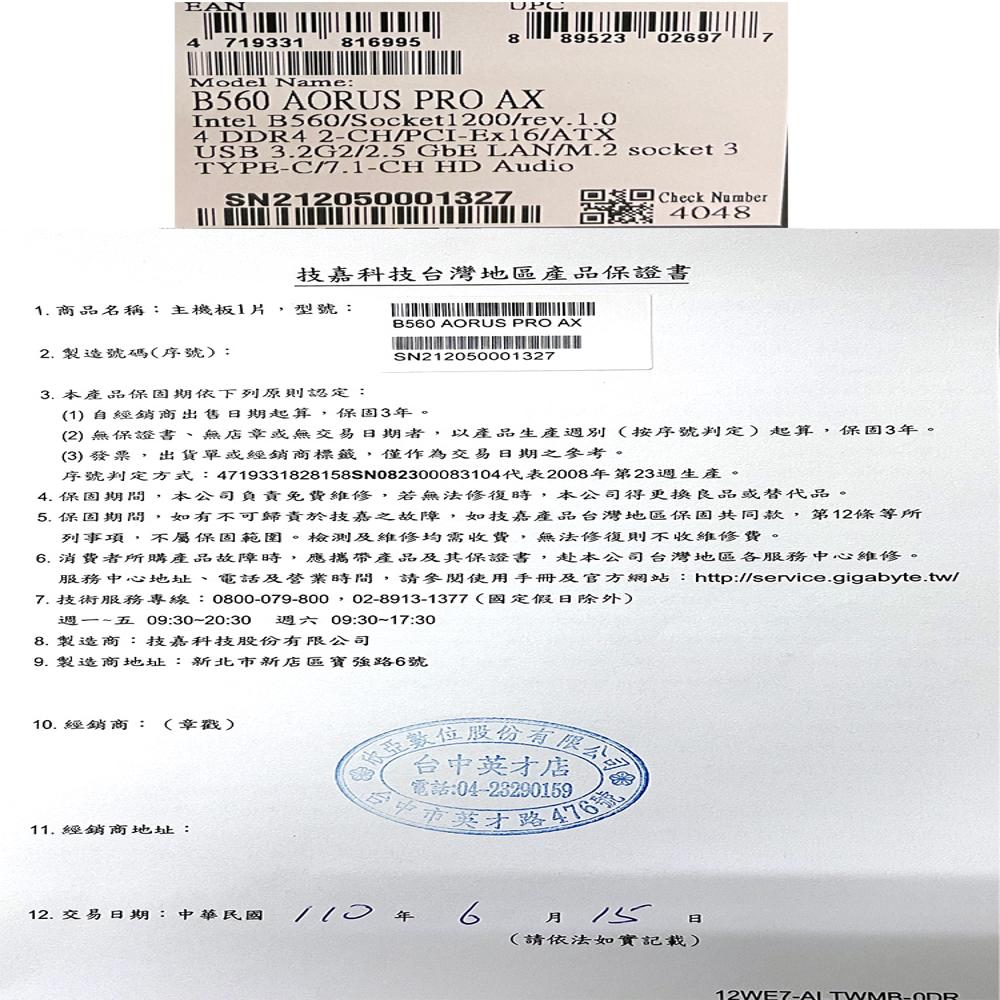 EAN
UPC
4 719331 816995
8 89523 02697 7
Model Name:
B560 AORUS PRO AX
Intel B560/Socket1200/rev.1.0
4 DDR4 2-CH/PCI-Ex16/ATX
USB 3.2G2/2.5 GbE LAN/M.2 socket 3
TYPE-C/7.1-CH HD Audio
SN212050001327
Check Number
4048
技嘉科技台灣地區產品保證書
1. 商品名稱：主機板1片，型號：
B560 AORUS PRO AX
2. 製造號碼(序號)：
SN212050001327
3. 本產品保固期依下列原則認定：
(1) 自經銷商出售日期起算，保固3年。
(2) 無保證書、無店章或無交易日期者，以產品生產週別（按序號判定）起算，保固3年。
(3) 發票，出貨單或經銷商標籤，僅作為交易日期之參考。
序號判定方式：4719331828158SN082300083104代表2008年第23週生產。
4. 保固期間，本公司負責免費維修，若無法修復時，本公司得更換良品或替代品。
5. 保固期間，如有不可歸責於技嘉之故障，如技嘉產品台灣地區保固共同款，第12條等所
列事項，不屬保固範圍。檢測及維修均需收費，無法修復則不收維修費。
6. 消費者所購產品故障時，應攜帶產品及其保證書，赴本公司台灣地區各服務中心維修。
服務中心地址、電話及營業時間，請參閱使用手冊及官方網站：http://service.gigabyte.tw/
7. 技術服務專線：0800-079-800，02-8913-1377（國定假日除外）
週一~五 09:30~20:30 週六 09:30~17:30
8. 製造商：技嘉科技股份有限公司
9. 製造商地址：新北市新店區寶強路6號
10. 經銷商：（章戳）
欣亞數位股份有限公司
台中英才店
電話:04-23290159
台中市英才路476號
11. 經銷商地址：
12. 交易日期：中華民國 110 年 6 月 15 日
（請依法如實記載）
12WE7-ALTWMB-0DR